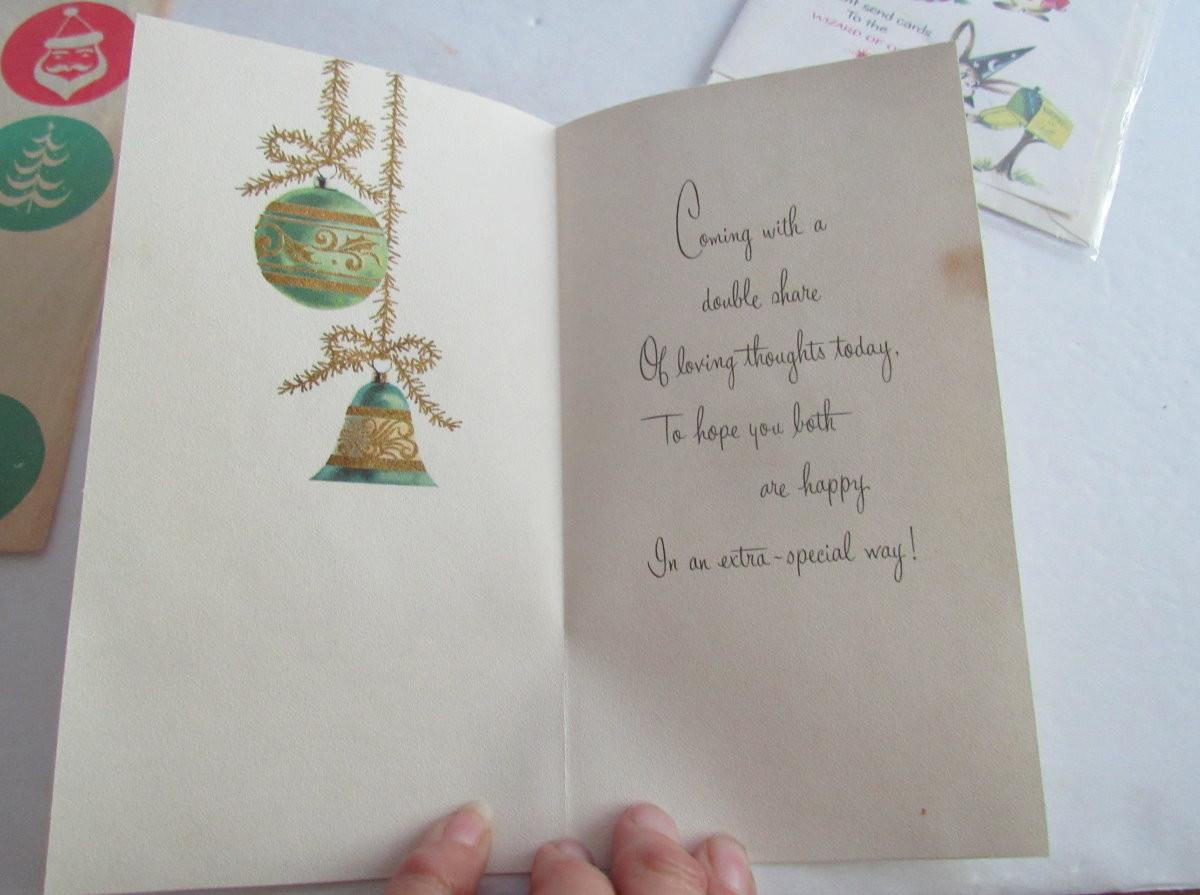 send cards
To the
WIZARD OF
Coming with a
double share
Of loving thoughts today,
To hope you both
are happy
In an extra-special way!